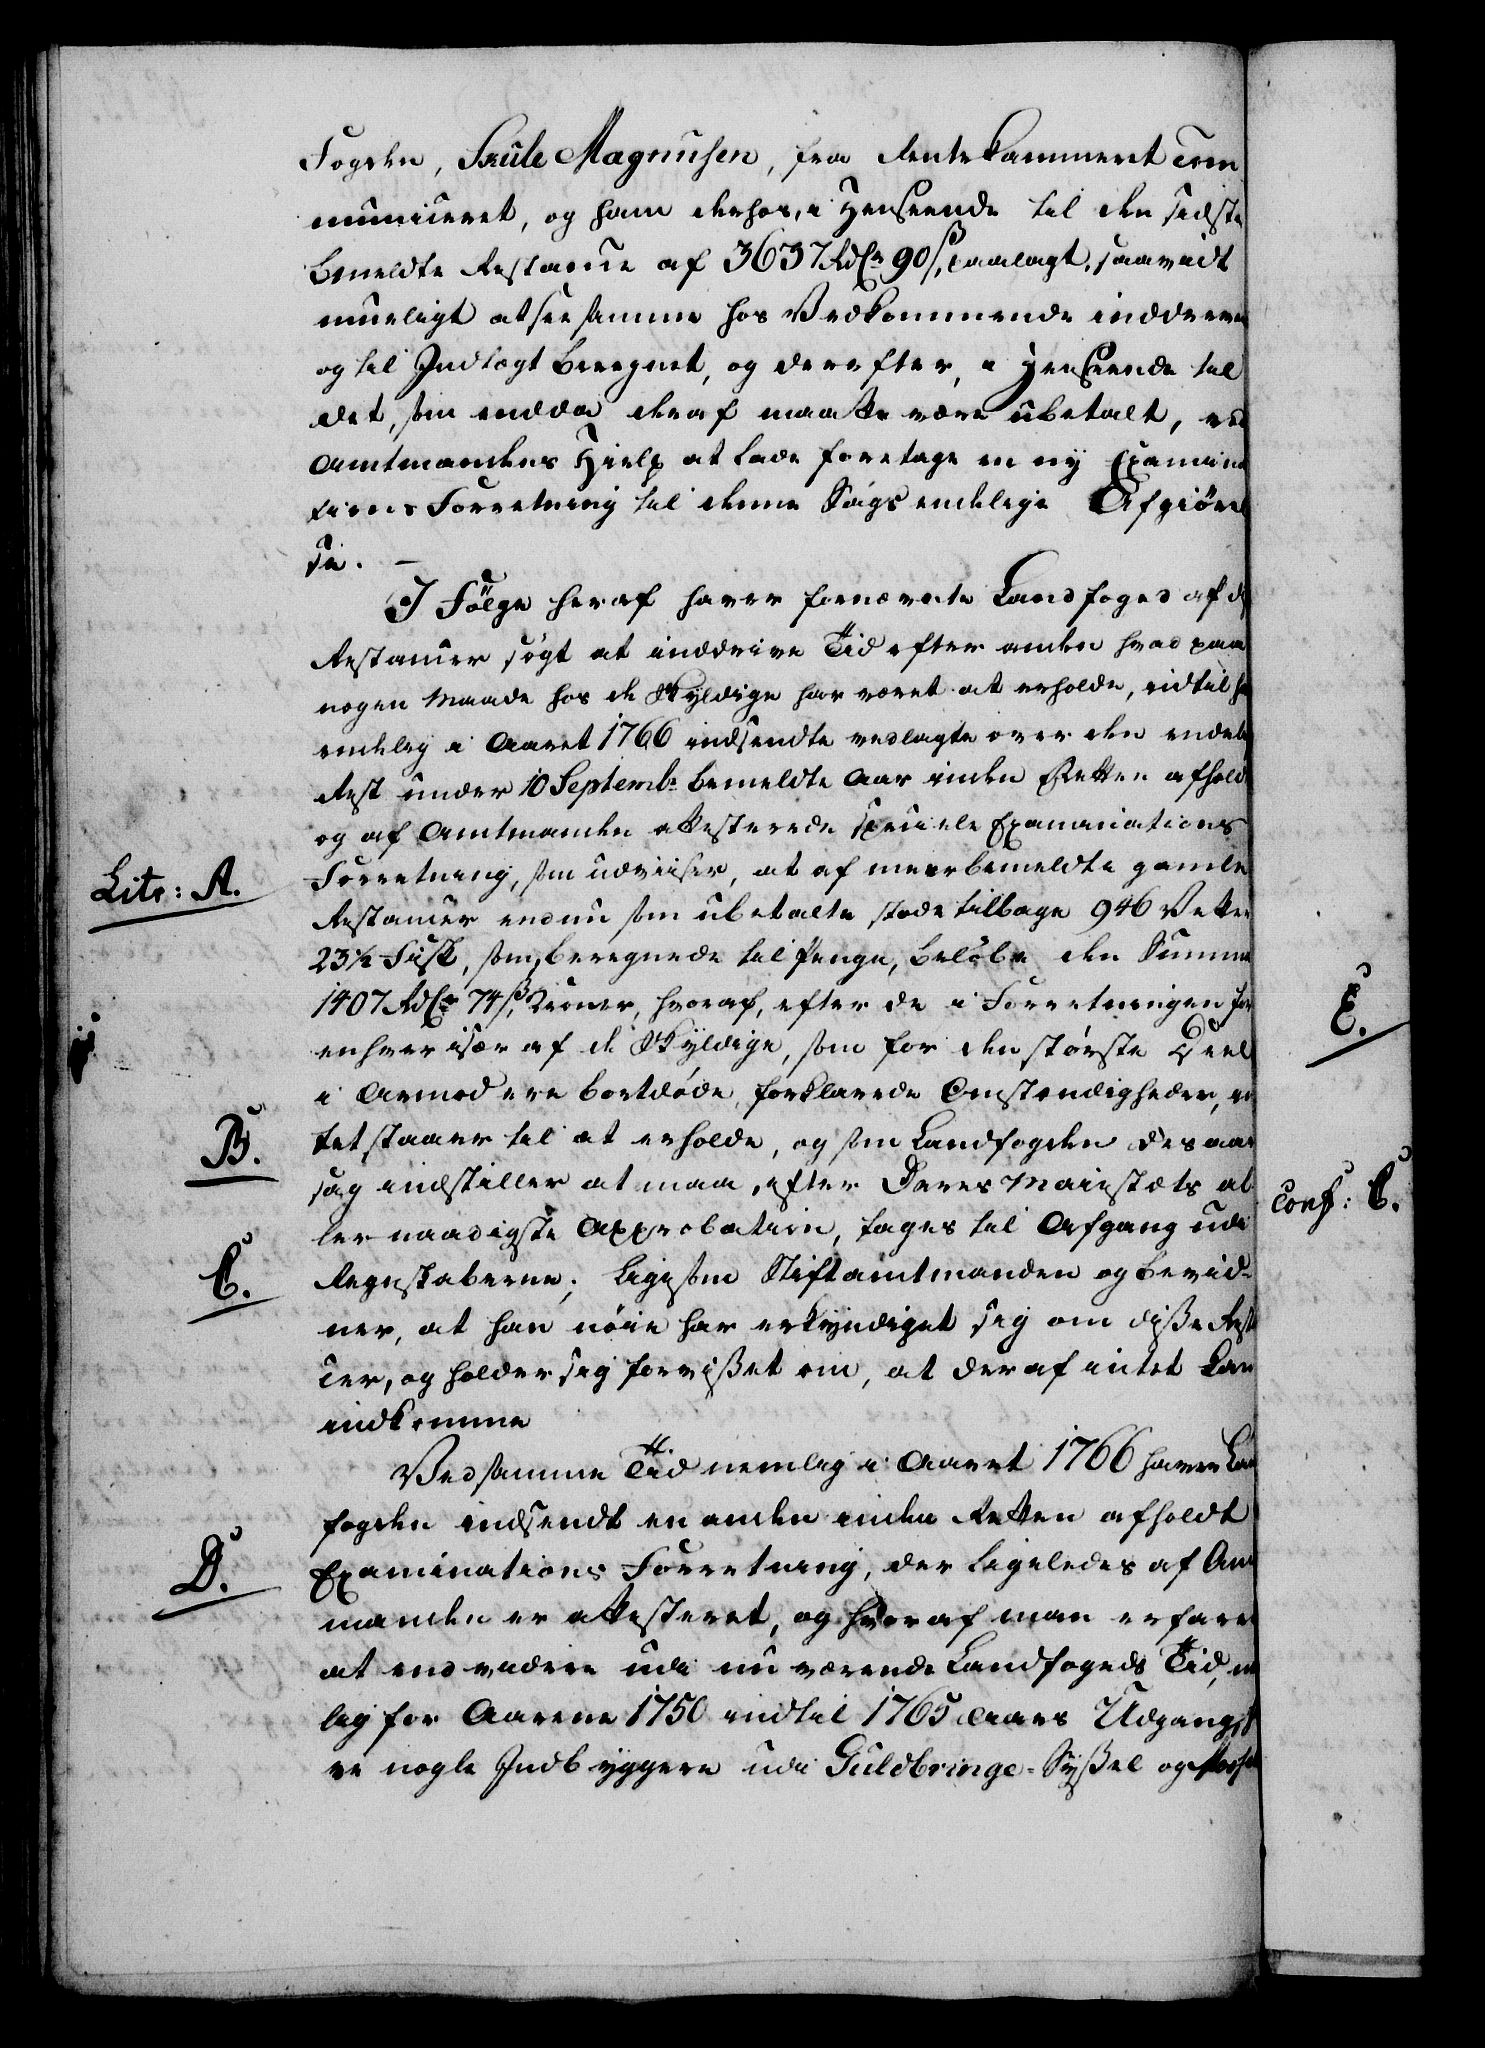 Fogden, Skule Magnusen, fra Rentekammeret com
municeret, og ham derhos, i Henseende til den sidst
bemeldte Restance af 3637 Rdlr 90 ß, paalagt, saavidt
mueligt at see samme hos Vedkommende inddreven
og til Indtægt beregnet, og derefter, i Henseende til
det, som endda deraf maatte være ubetalt, ved
Amtmandens Hielp at lade foretage en ny Examina
tions Forretning til denne Sags endelige Afgiörel
se. –
I Fölge heraf haver fornævnte Landfoged af de
Restancer sögt at inddrive Tid efter anden hvad paa
nogen Maade hos de Skyldige har været at erholde, indtil ha
endelig i Aaret 1766 indsendte vedlagte over den endel
Rest under 10 Septembr bemeldte Aar inden Retten afhold
og af Amtmanden attesterede speciele Examinations
Litr: A. Forretning, som udviiser, at af meerbemeldte gamle
Restancer endnu som ubetalte stode tilbage 946 Vetter
23½ Fisk, som, beregnede til Penge, belöbe den Summa
1407 Rdlr 74 ß, Kroner, hvoraf, efter de i Forretningen for
E.
enhver især af de Skyldige, som for den störste Deel
i Armod ere bortdöde, forklarede Omstændigheder, in
B. tet staaer til at erholde, og som Landfogden des aar
sag indstiller at maa, efter Deres Maiestæts al
conf: C.
lernaadigste Approbation, tages til Afgang udi
C. Regnskaberne; ligesom Stiftamtmanden og bevid-
ner, at han nöie har erkyndiget sig om disse Rest
cer, og holder sig forvisset om, at deraf intet kan
indkomme
Ved samme Tid nemlig i Aaret 1766 haver Lan
fogden indsendt en anden inden Retten afholdt
D. Examinations Forretning, der ligeledes af Am
manden er attesteret, og hvoraf man erfare
at endvidere udi nu værende Landfogeds Tid, n
lig for Aarene 1750 indtil 1765 Aars Udgang, st
re nogle Indbyggere udi Guldbringe-Syssel og